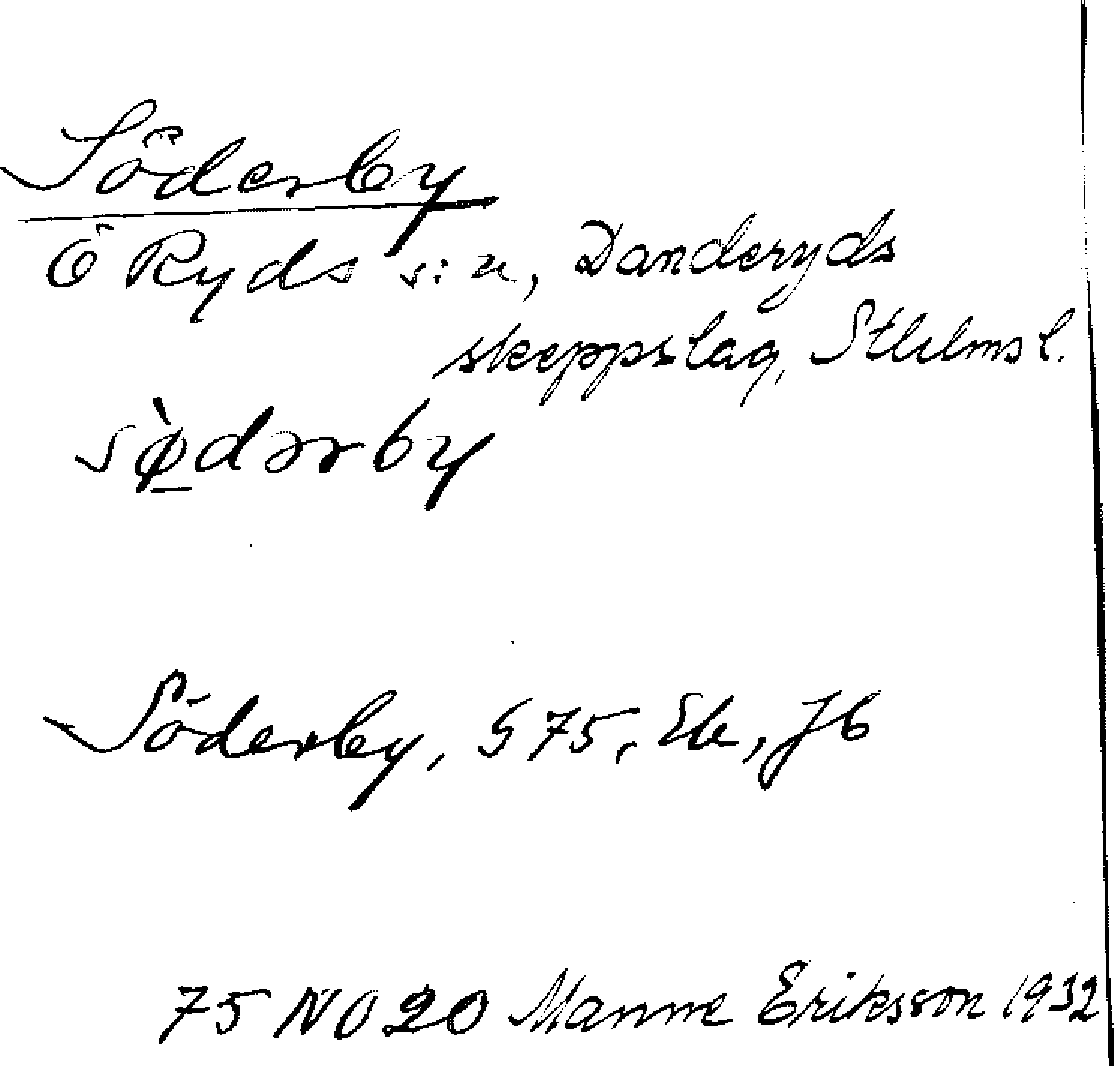 Söderby
Ö Ryds s:n, Danderyds
skeppslag, Sthlms l.
sø̀dərby
Söderby, G 75, Ek, Jb
75 NO 20 Manne Eriksson 1932